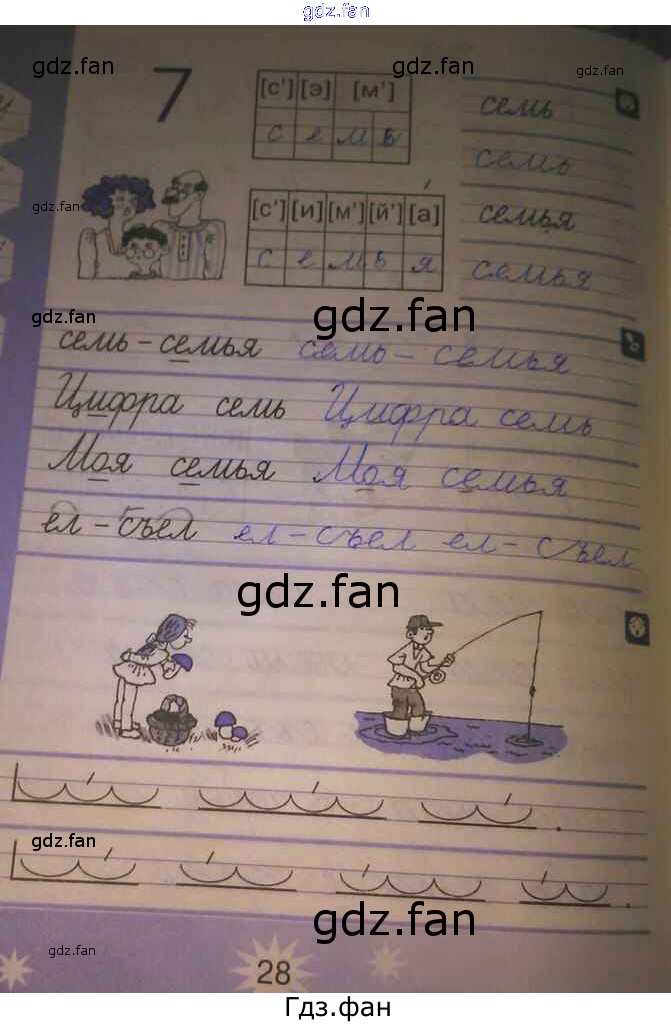 gdz.fan
gdz.fan gdz.fan gdz.fan
7
[с'] [э] [м']
с е м ь
семь
семь
gdz.fan
[с'] [и] [м'] [й'] [а]
с е м ь я
семья
семья
gdz.fan gdz.fan
семь - семья семь - семья
Цифра семь Цифра семь
Моя семья Моя семья
ел - съел ел - съел ел - съел
gdz.fan
gdz.fan
gdz.fan
gdz.fan
28
Гдз.фан